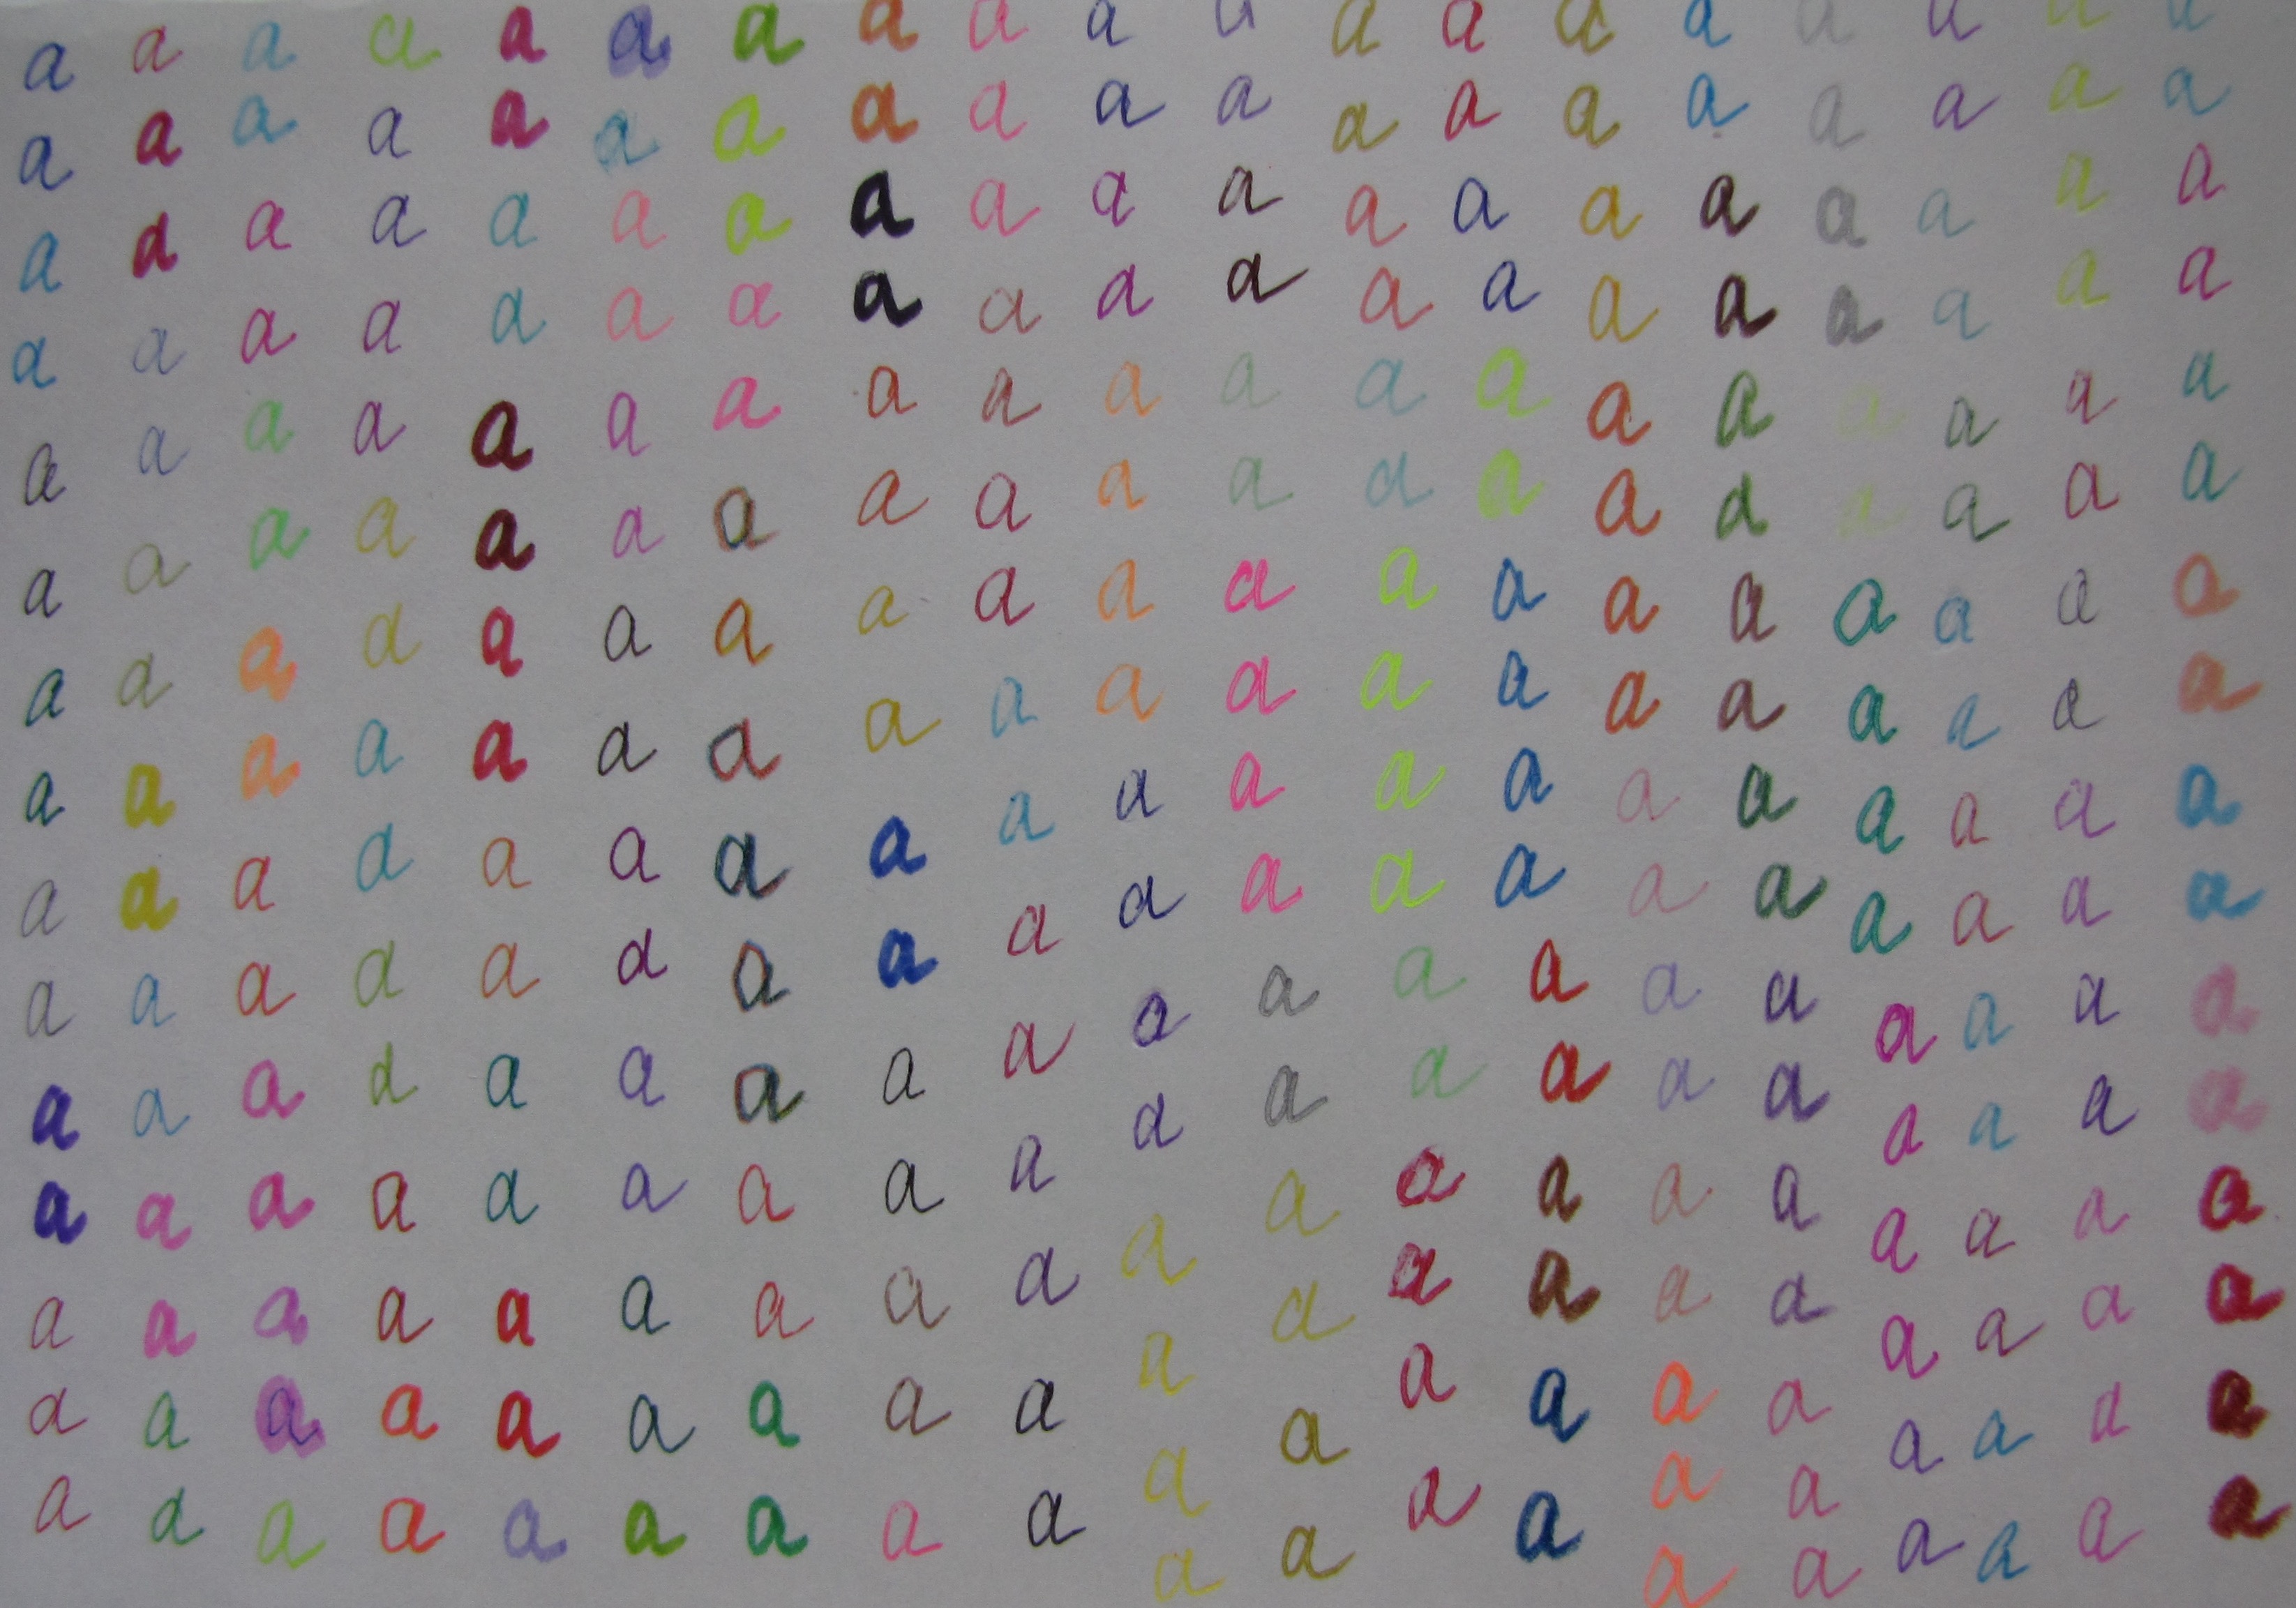 a a a a a a a a a a a a a a a a a a a
a a a a a a a a a a a a a a a a a a a
a a a a a a a a a a a a a a a a a a a
a a a a a a a a a a a a a a a a a a a
a a a a a a a a a a a a a a a a a a a
a a a a a a a a a a a a a a a a a a a
a a a a a a a a a a a a a a a a a a a
a a a a a a a a a a a a a a a a a a a
a a a a a a a a a a a a a a a a a a a
a a a a a a a a a a a a a a a a a a a
a a a a a a a a a a a a a a a a a a a
a a a a a a a a a a a a a a a a a a a
a a a a a a a a a a a a a a a a a a a
a a a a a a a a a a a a a a a a a a a
a a a a a a a a a a a a a a a a a a a
a a a a a a a a